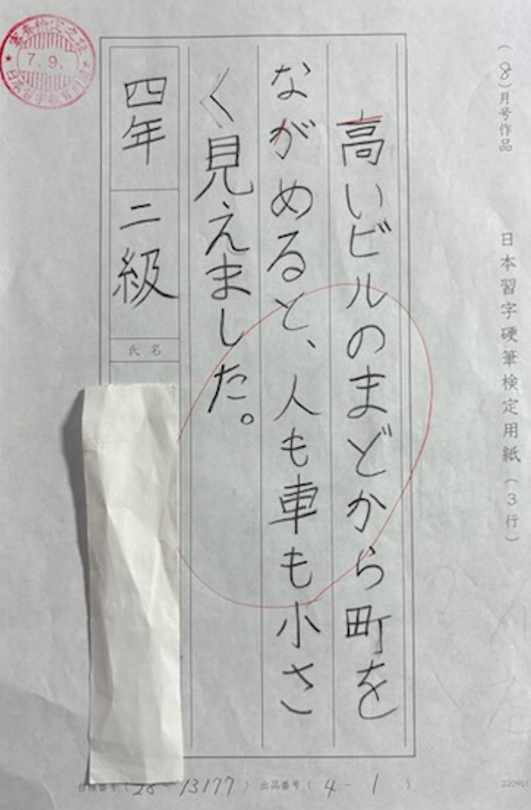 (8)月号作品
日本習字硬筆検定用紙(3行)
高いビルのまどから町を
ながめると、人も車も小さ
く見えました。
四年 二級
氏名
7.9.
(28-13177) 出品番号(4-1)